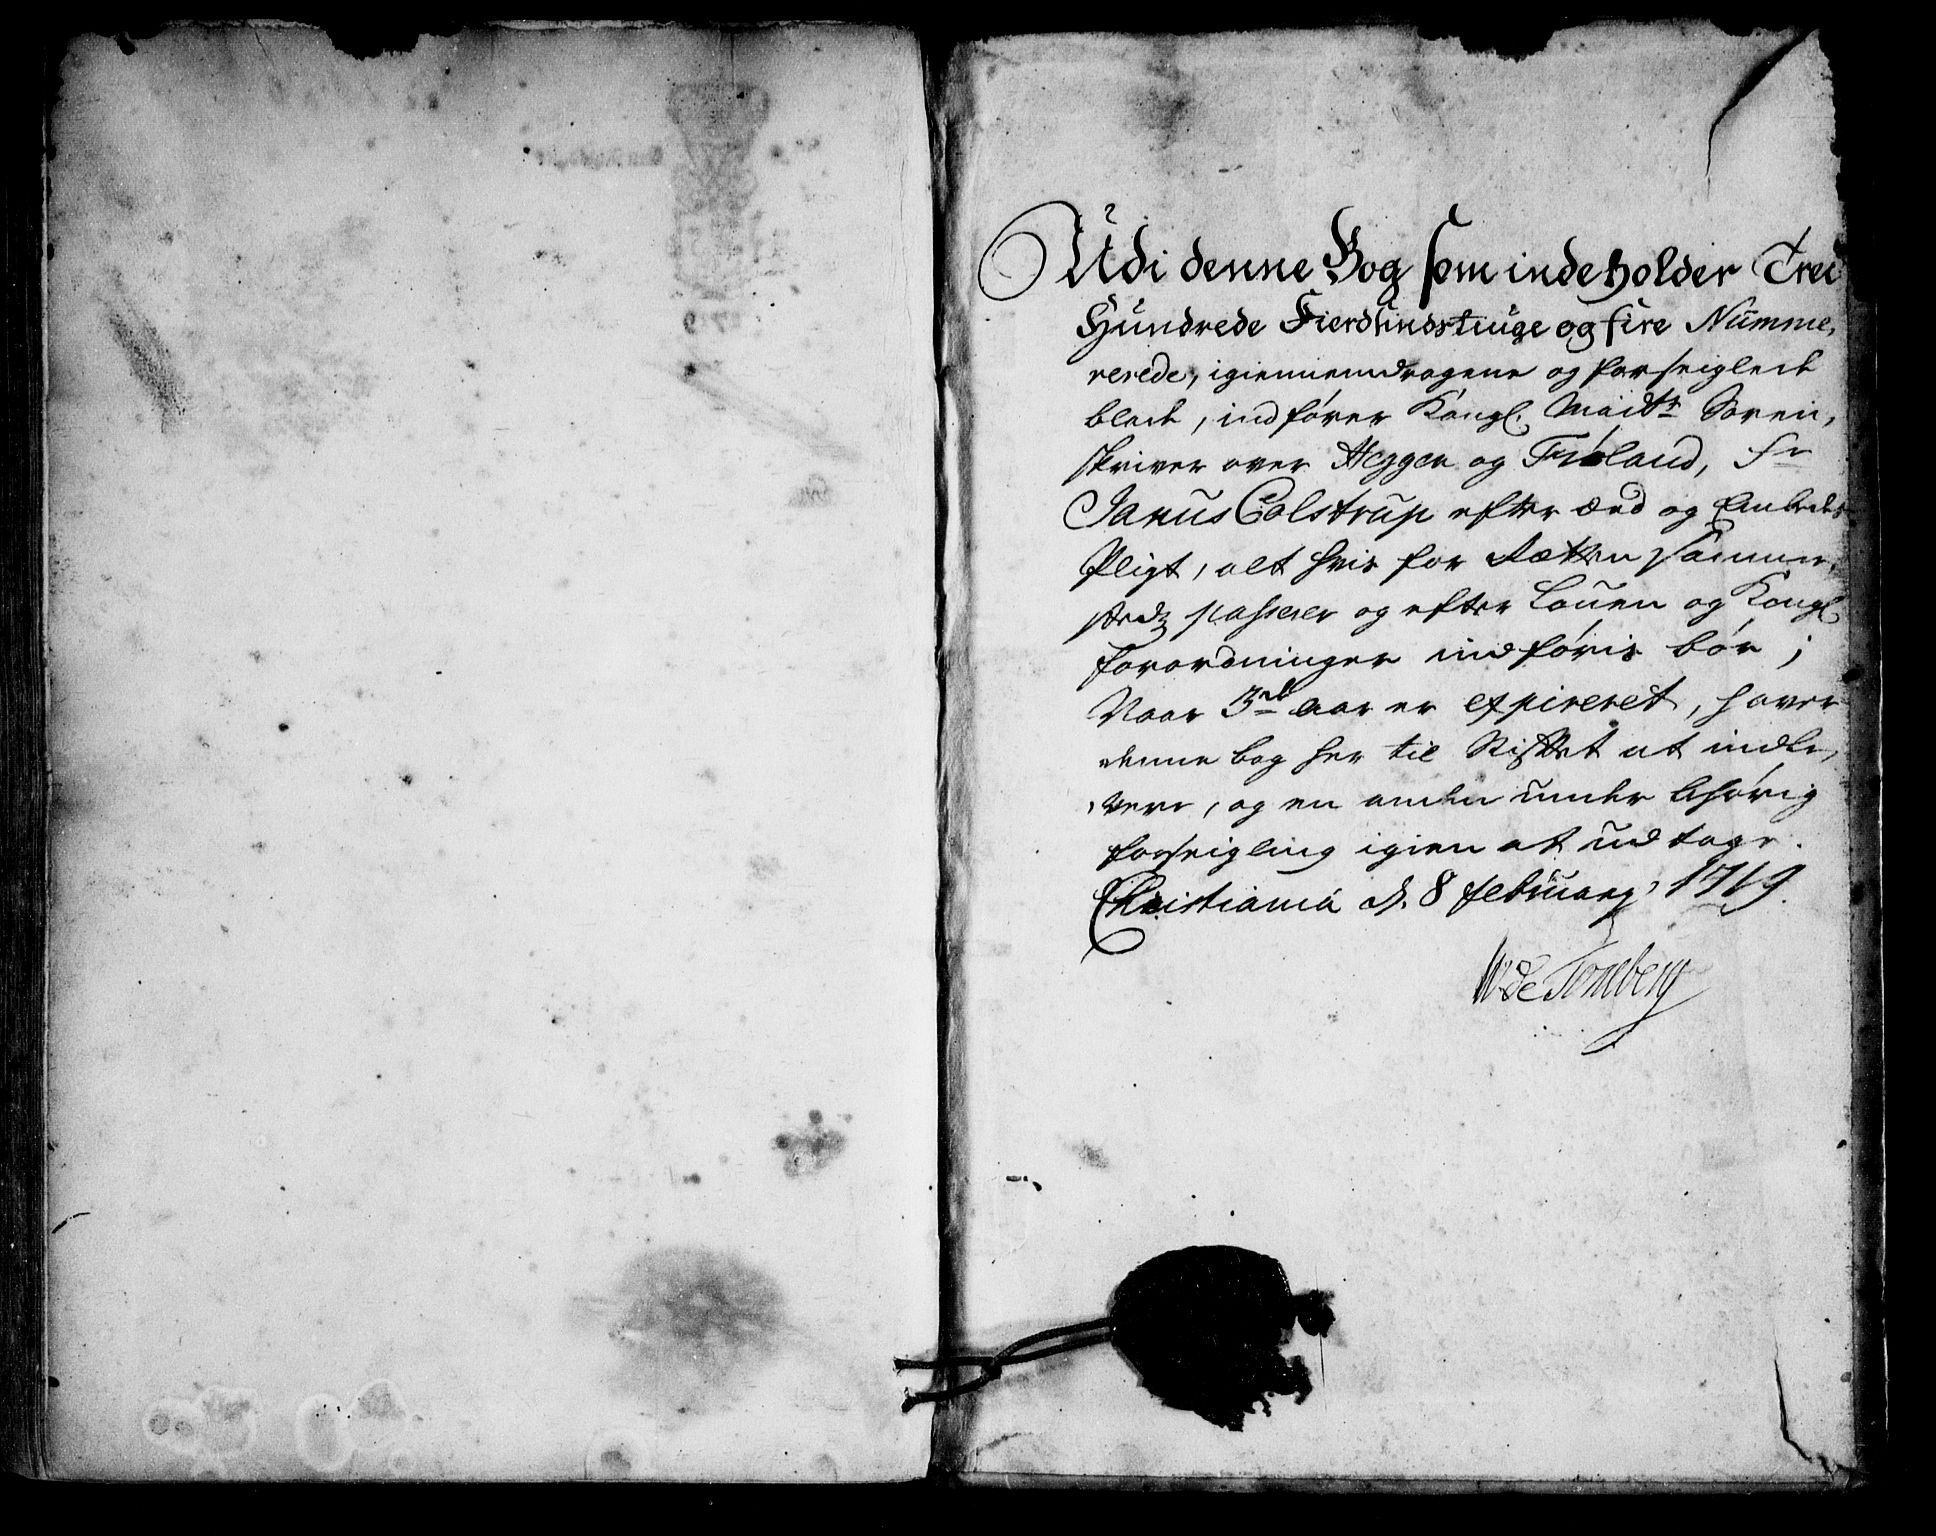 Udi denne Bog som indeholder Trei
Hundrede Fierdsindstiuge og fire Numme,
rerede, igiennemdragene og forseiglede
blade, indfører Kongl. Maj:ts Soren,
skriver over Heggen og Frøland, Sr
Janus Colstrup efter Æed og Embeds
Pligt, alt hvis for Rætten sammen,
stedz passerer og efter Louen og Kongl
forordninger indføris bør;
Naar 3de aar er expireret, haver
denne bog her til Stiftet at indle,
vere, og en anden under behørig
forseigling igien at udtage.
Christiania d. 8 february 1719.
W. de Tonsberg
1719